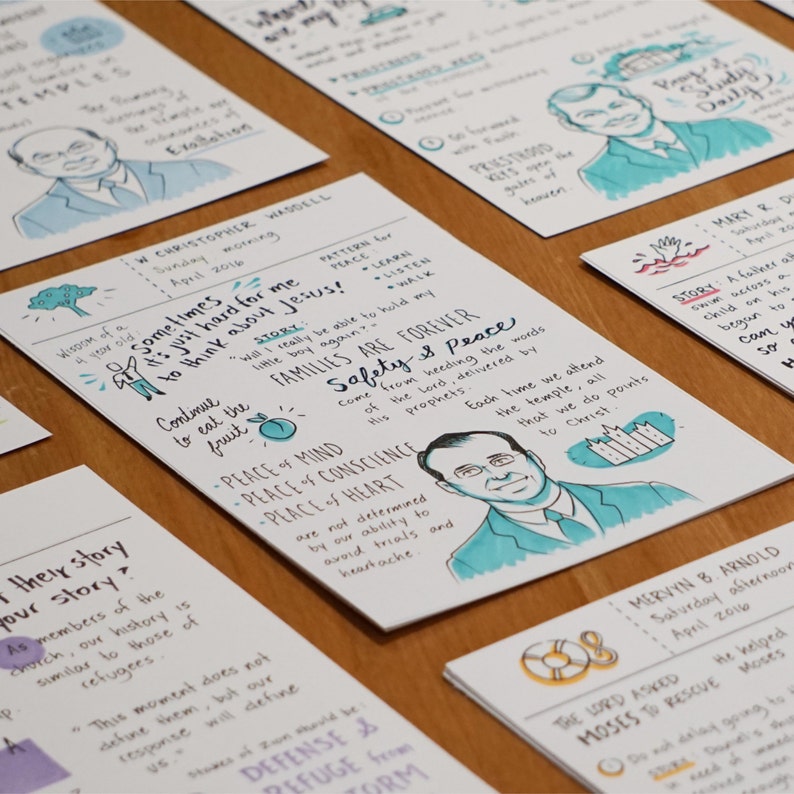 TEMPLES
The Primary
blessings of
the temple are
ordinances of
Exaltation
are my
PRIESTHOOD
PRIESTHOOD KEYS
Prepare for missionary
service
Go forward
with Faith
PRIESTHOOD
KEYS open the
gates of
heaven.
Pray &
Study
Daily
W CHRISTOPHER WADDELL
Sunday morning
April 2016
WISDOM of a
4 year old:
Sometimes
it's just hard for me
to think about Jesus!
PATTERN for
PEACE:
• LEARN
• LISTEN
• WALK
STORY:
"Will I really be able to hold my
little boy again?"
FAMILIES ARE FOREVER
Safety & Peace
come from heeding the words
of the Lord, delivered by
His prophets.
Continue
to eat the
fruit
Each time we attend
the temple, all
that we do points
to Christ.
• PEACE of MIND
• PEACE of CONSCIENCE
• PEACE of HEART
are not determined
by our ability to
avoid trials and
heartache.
MARY R. DU
Saturday
April 20
STORY: A father at
swim across a
child on his
began to s
can yo
so
their story
your story?
As members of the
church, our history is
similar to those of
refugees.
"This moment does not
define them, but our
response will define
us."
Stakes of Zion should be:
DEFENSE &
REFUGE from
STORM
A
MERVYN B. ARNOLD
Saturday afternoon
April 2016
THE LORD ASKED
MOSES TO RESCUE
He helped
Moses
Do not delay going to th
STORY: Daniel's
in need of immed